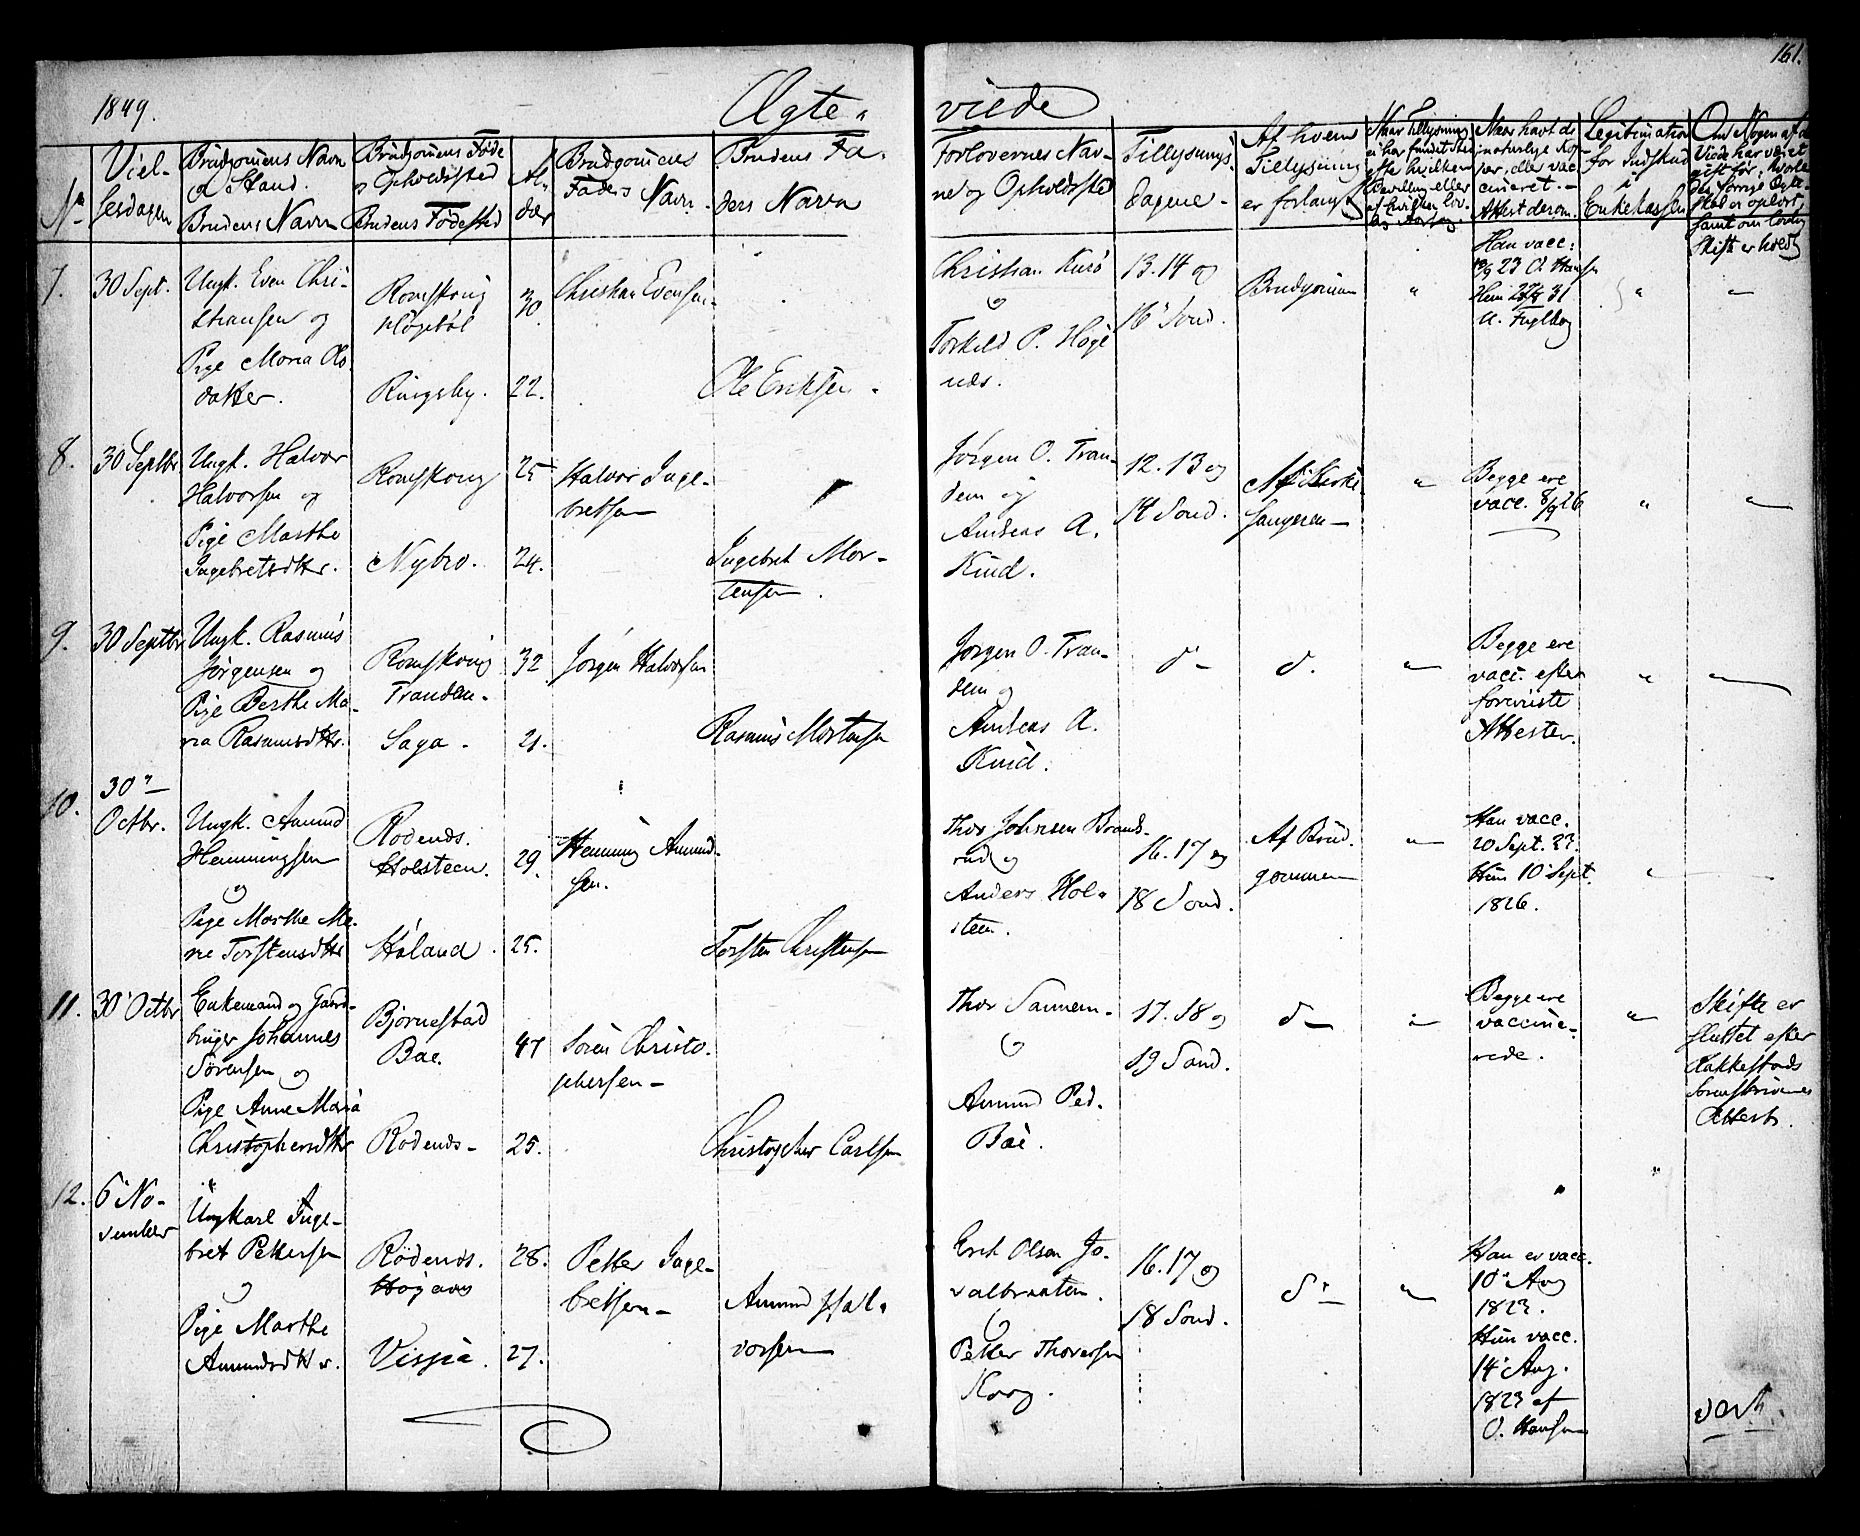 161.
1849.
Ægte-
viede
No
Viel-
sesdagen
Brudgomens Navn
og Stand.
Brudens Navn
Brudgomens Føde
og Opholdssted
Brudens Fødested
Al-
der
Brudgomens
Faders Navn.
Brudens Fa-
ders Navn
Forlovernes Nav-
ne og Opholdssted
Tillysnings
dagene.
Af hvem
Tillysning
er forlangt
Naar Tillysning
ei har fundet Sted
efter hvilken
Bevilling eller
Om havt de
naturlige Kop-
per, eller vac-
cineret.
Attest derom.
Legitimation
for Indskud
i
Enkekassen
Om Nogen af de
Viede har været
gift før, hvorle-
des forrige Ægte-
skab er opløst,
samt om lovlig
Skifte er holdt
7.
30 Sept.
Ungk. Even Chri-
stiansen og
Pige Maria Ols-
datter.
Romskoug
Høgebøl
Ringsby.
30
22.
Christian Evensen
Ole Eriksen
Christian Kurø
og
Torkild P. Høge
nes.
13. 14 og
16' Sønd.
Brudgomen
"
Han vacc:
19/9 23 O. Hansen
Hun 31
A. Fuglberg
"
"
8.
30 Septbr
Ungk. Halvor
Halvorsen og
Pige Marthe
Ingebretsdttr.
Romskoug
Nybro.
25
24.
Halvor Inge-
bretsen
"
Ingebret Mor-
tensen
Jørgen O. Tran-
dem og
Andreas A.
Kind.
12. 13 og
14 Sønd.
Af Kirke-
sangeren
"
Begge ere
vacc. 8/9 26
"
"
9.
30 Septbr
Ungk. Rasmus
Jørgensen og
Pige Berthe Ma-
ria Rasmusdttr.
Romskoug
Trandem.
Saga.
32
21.
Jørgen Halvorsen
Rasmus Mortensen
Jørgen O. Tran-
dem og
Andreas A.
Kind.
d°
d.
"
Begge ere
vacc. efter
foreviste
Attester.
"
"
10.
30"
Octbr.
Ungk. Amund
Hemmingsen
og
Pige Marthe Ma-
rie Torstensdttr
Rødends.
Holsteen.
Høland.
29.
25.
Hemming Amund-
sen.
Torsten Christensen
Thor Johnsen Brand-
rud og
Anders Hol-
steen.
16. 17 og
18 Sønd.
Af Brud-
gommen
"
Han vacc.
20 Sept. 23.
Hun 10 Sept.
1826.
"
11.
30' Octbr
Enkemand og Gaard-
bruger Johannes
Sørensen og
Pige Anne Maria
Christophersdttr
Bjørnestad
Bae.
Rødends
47
25.
Søren Christo-
phersen
Christopher Carlsen
Thor Sannem
og
Amund Ped.
Bae.
17. 18 og
19 Sønd.
d
"
Begge ere
vaccine-
rede.
"
Skifte er
sluttet efter
Rakkestads
Sorenskrivers
Attest.
12.
6' No-
vember
Ungkarl Inge-
bret Pettersen
og
Pige Marthe
Amundsdttr.
Rødends.
Visjia.
28.
27.
Petter Inge-
bretsen
Amund Hal-
vorsen
Erik Olsen Jo-
valbraaten.
og
Petter Thoresen
16. 17 og
18 Sønd.
d°
"
Han er vacc.
10' Aug
1823.
Hun vacc.
14' Aug.
1823 af
O. Hansen
"
"
vert.